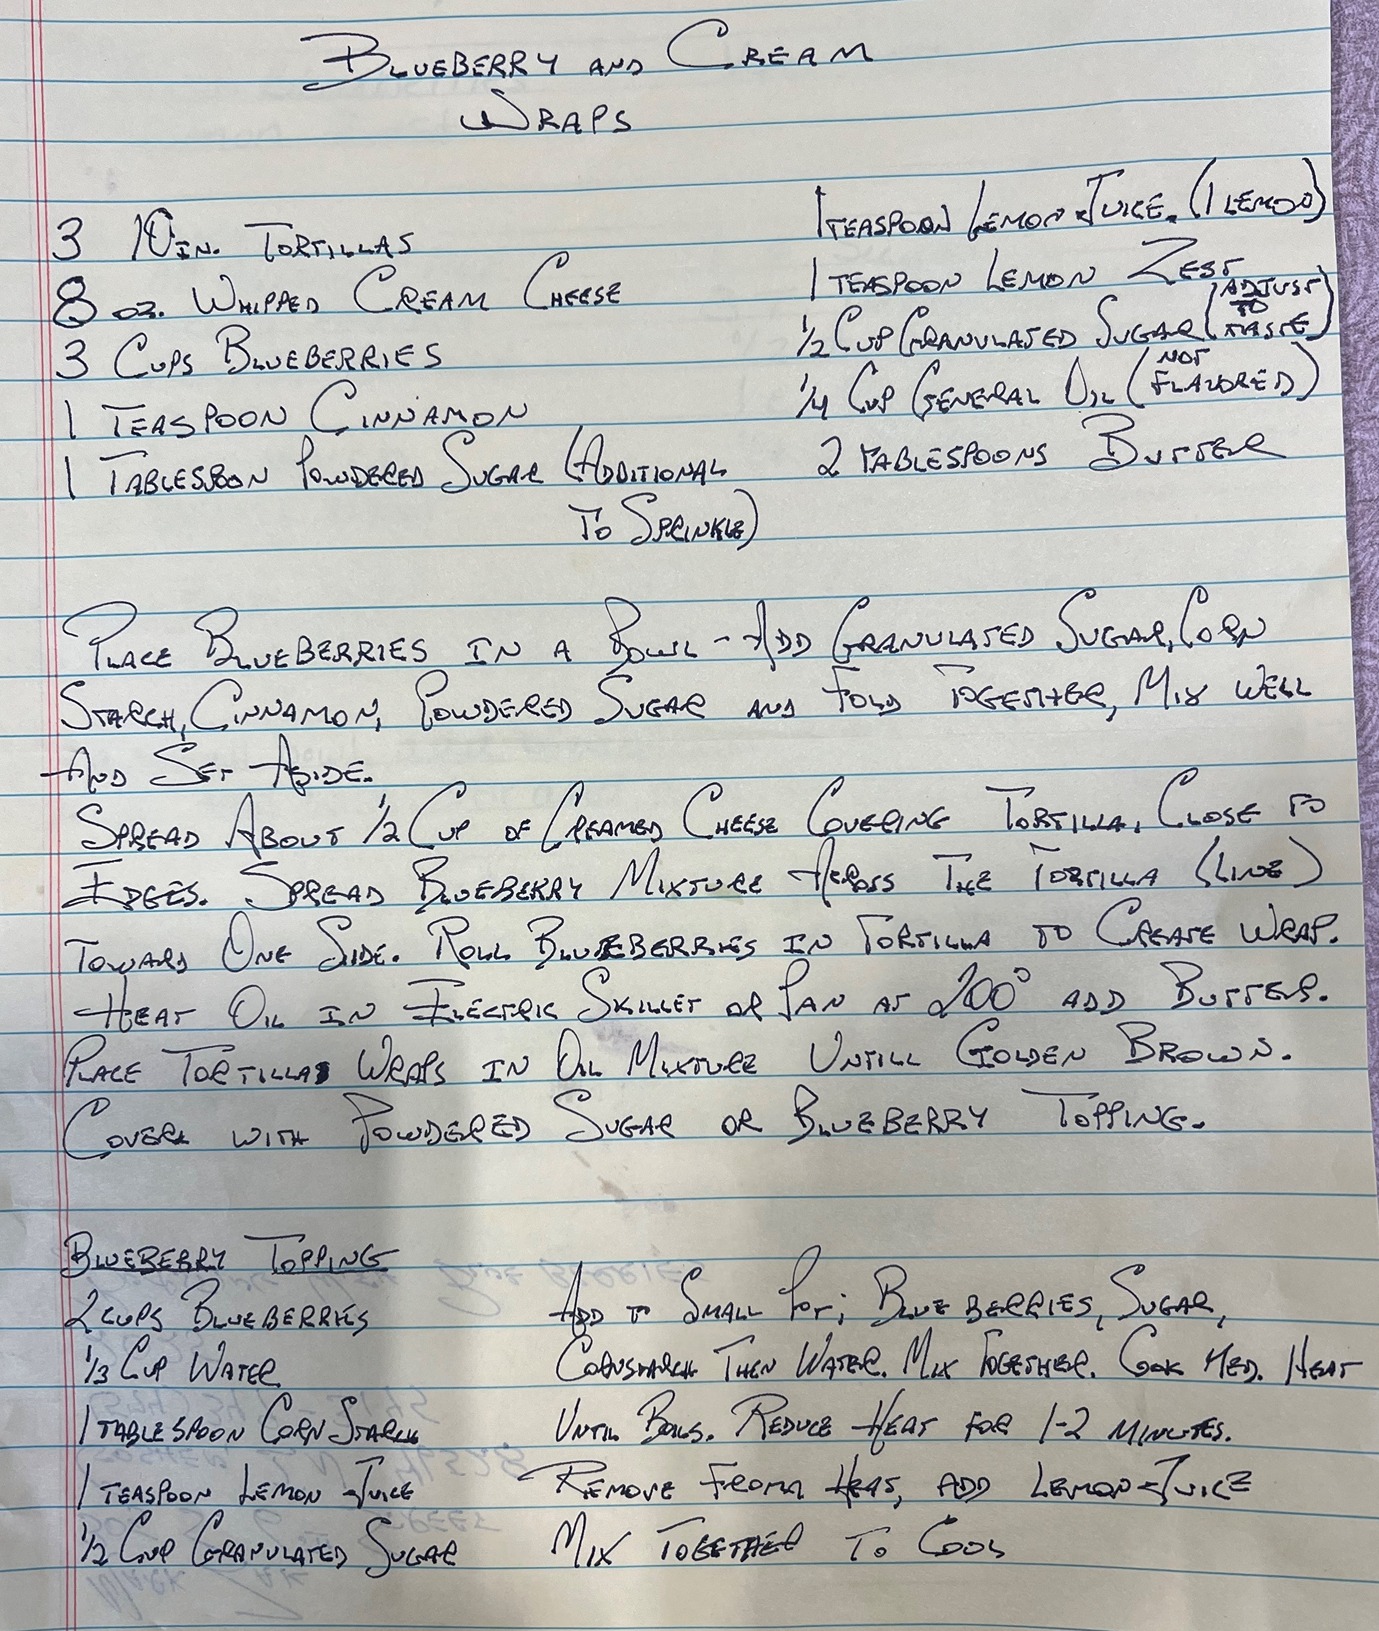 Blueberry and Cream
Wraps
3 10 in. Tortillas
8 oz. Whipped Cream Cheese
3 Cups Blueberries
1 Teaspoon Cinnamon
1 Tablespoon Powdered Sugar (Additional
To Sprinkle)
1 teaspoon Lemon Juice. (1 Lemon)
1 teaspoon Lemon Zest
1/2 Cup Granulated Sugar (Adjust to taste)
1/4 Cup General Oil (not flavored)
2 tablespoons Butter
Place Blueberries in a Bowl - Add Granulated Sugar, Corn
Starch, Cinnamon, Powdered Sugar and Fold Together, Mix well
And Set Aside.
Spread About 1/2 Cup of Creamed Cheese Covering Tortilla. Close to
Edges. Spread Blueberry Mixture Across The Tortilla (Line)
Toward One Side. Roll Blueberries in Tortilla to Create Wrap.
Heat Oil in Electric Skillet or Pan at 200° add Butter.
Place Tortilla Wraps in Oil Mixture Untill Golden Brown.
Cover with Powdered Sugar or Blueberry Topping.
Blueberry Topping
2 cups Blueberries
1/3 Cup Water
1 tablespoon Corn Starch
1 teaspoon Lemon Juice
1/2 Cup Granulated Sugar
Add to Small Pot; Blue berries, Sugar,
Cornstarch Then Water. Mix Together. Cook Med. Heat
Until Boils. Reduce Heat for 1-2 minutes.
Remove from Heat, add Lemon Juice
Mix Together To Cool